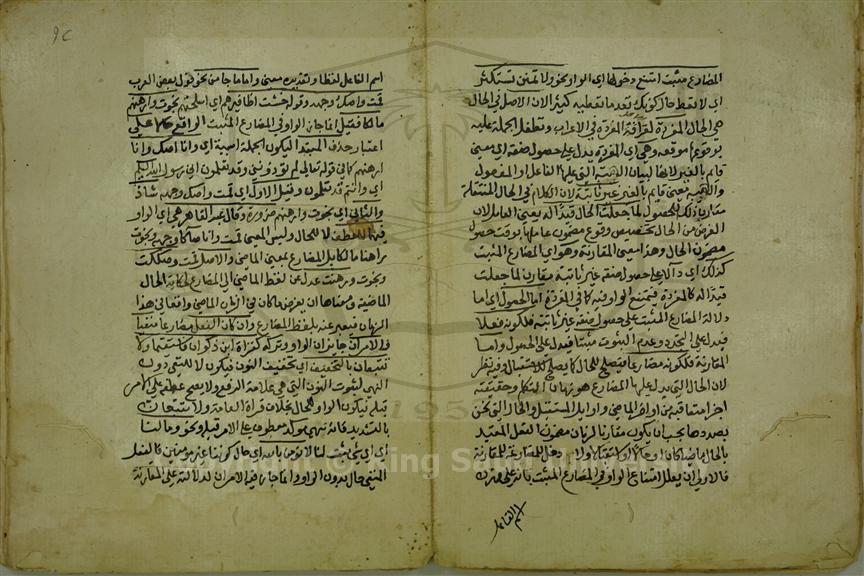 المضارع مثبت امتنع دخولها اي الواو نحو ولا تمنن تستكثر
اي لا تعط حال كونك تعد ما تعطيه كثيرا لان الاصل في الحال
هي الحال المفردة لعراقة المفردة في الاعراب وتطفل الجملة عليه
بوقوعها موقعه وهي اي المفردة يدل على حصول صفة اي معنى
قايم بالغير لانها لبيان الهيئة التي عليها الفاعل او المفعول
والهيئة معنى قايم بالغير غير ثابتة لان الكلام في الحال المنتقلة
مقارن ذلك الحصول لما جعلت الحال قيدا له يعني العامل لان
الغرض من الحال تخصيص وقوع مضمون عاملها بوقت حصول
مضمون الحال وهذا معنى المقارنة وهو اي المضارع المثبت
كذلك اي دال على حصول صفة غير ثابتة مقارن لما جعلت
قيدا له كالمفردة فيمتنع الواو فيه كما في المفردة اما الحصول اي اما
دلالة المضارع المثبت على حصول صفة غير ثابتة فلكونه فعلا
فيدل على التجدد وعدم الثبوت مثبتا فيدل على الحصول واما
المقارنة فلكونه مضارعا فيصلح للحال كما يصلح للاستقبال وفيه نظر
لان الحال التي يدل عليها المضارع هو زمان التكلم وحقيقته
اجزا متعاقبة من اواخر الماضي واوايل المستقبل والحال التي نحن
بصددها يجب ان يكون مقارنا لزمان مضمون الفعل المقيد
بالحال ماضيا كان او حالا او استقبالا ولا دخل للمضارعة للمقارنة
فالاولى ان يعلل امتناع الواو في المضارع المثبت بانه على وزن
اسم الفاعل
اسم الفاعل لفظا وتقديره معنى واما ما جا من نحو قول بعض العرب
قمت واصك وجهه وقوله فلما خشيت اظافيرهم اي اسلحتهم نجوت وارهنهم
مالكا فقيل انما جاز الواو في المضارع المثبت الواقع حالا على
اعتبار حذف المبتدا ليكون الجملة اسمية اي وانا اصك وانا
ارهنهم كما في قوله تعالى لم تؤذونني وقد تعلمون اني رسول الله اليكم
اي وانتم قد تعلمون وقيل الاول اي قمت واصك وجهه شاذ
والثاني اي نجوت وارهنهم ضرورة وقال عبد القاهر هي اي الواو
فيهما للعطف لا للحال وليس المعنى قمت وانا صاكا وجهه ونجوت
راهنا مالكا بل المضارع بمعنى الماضي والاصل قمت وصككت
ونجوت ورهنت عدل عن لفظ الماضي الى المضارع لحكاية الحال
الماضية ومعناها ان يفرض ما كان في الزمان الماضي واقعا في هذا
الزمان فيعبر عنه بلفظ المضارع وان كان الفعل مضارعا منفيا
فالامران جايزان الواو وتركه كقراة ابن ذكوان فاستقيما ولا
تتبعان بالتخفيف اي بتخفيف النون فيكون لا للنفي دون
النهي لثبوت النون التي هي علامة الرفع ولا يصح عطفه على الامر
قبله فيكون الواو للحال بخلاف قراة العامة ولا تتبعان
بالتشديد فانه نهي مؤكد معطوف على الامر قبله ونحو وما لنا
اي اي شي ثبت لنا لا نؤمن بالله اي حال كوننا غير مؤمنين فالفعل
المنفي حال بدون الواو وانما جاز فيه الامران لدلالته على المقارنة